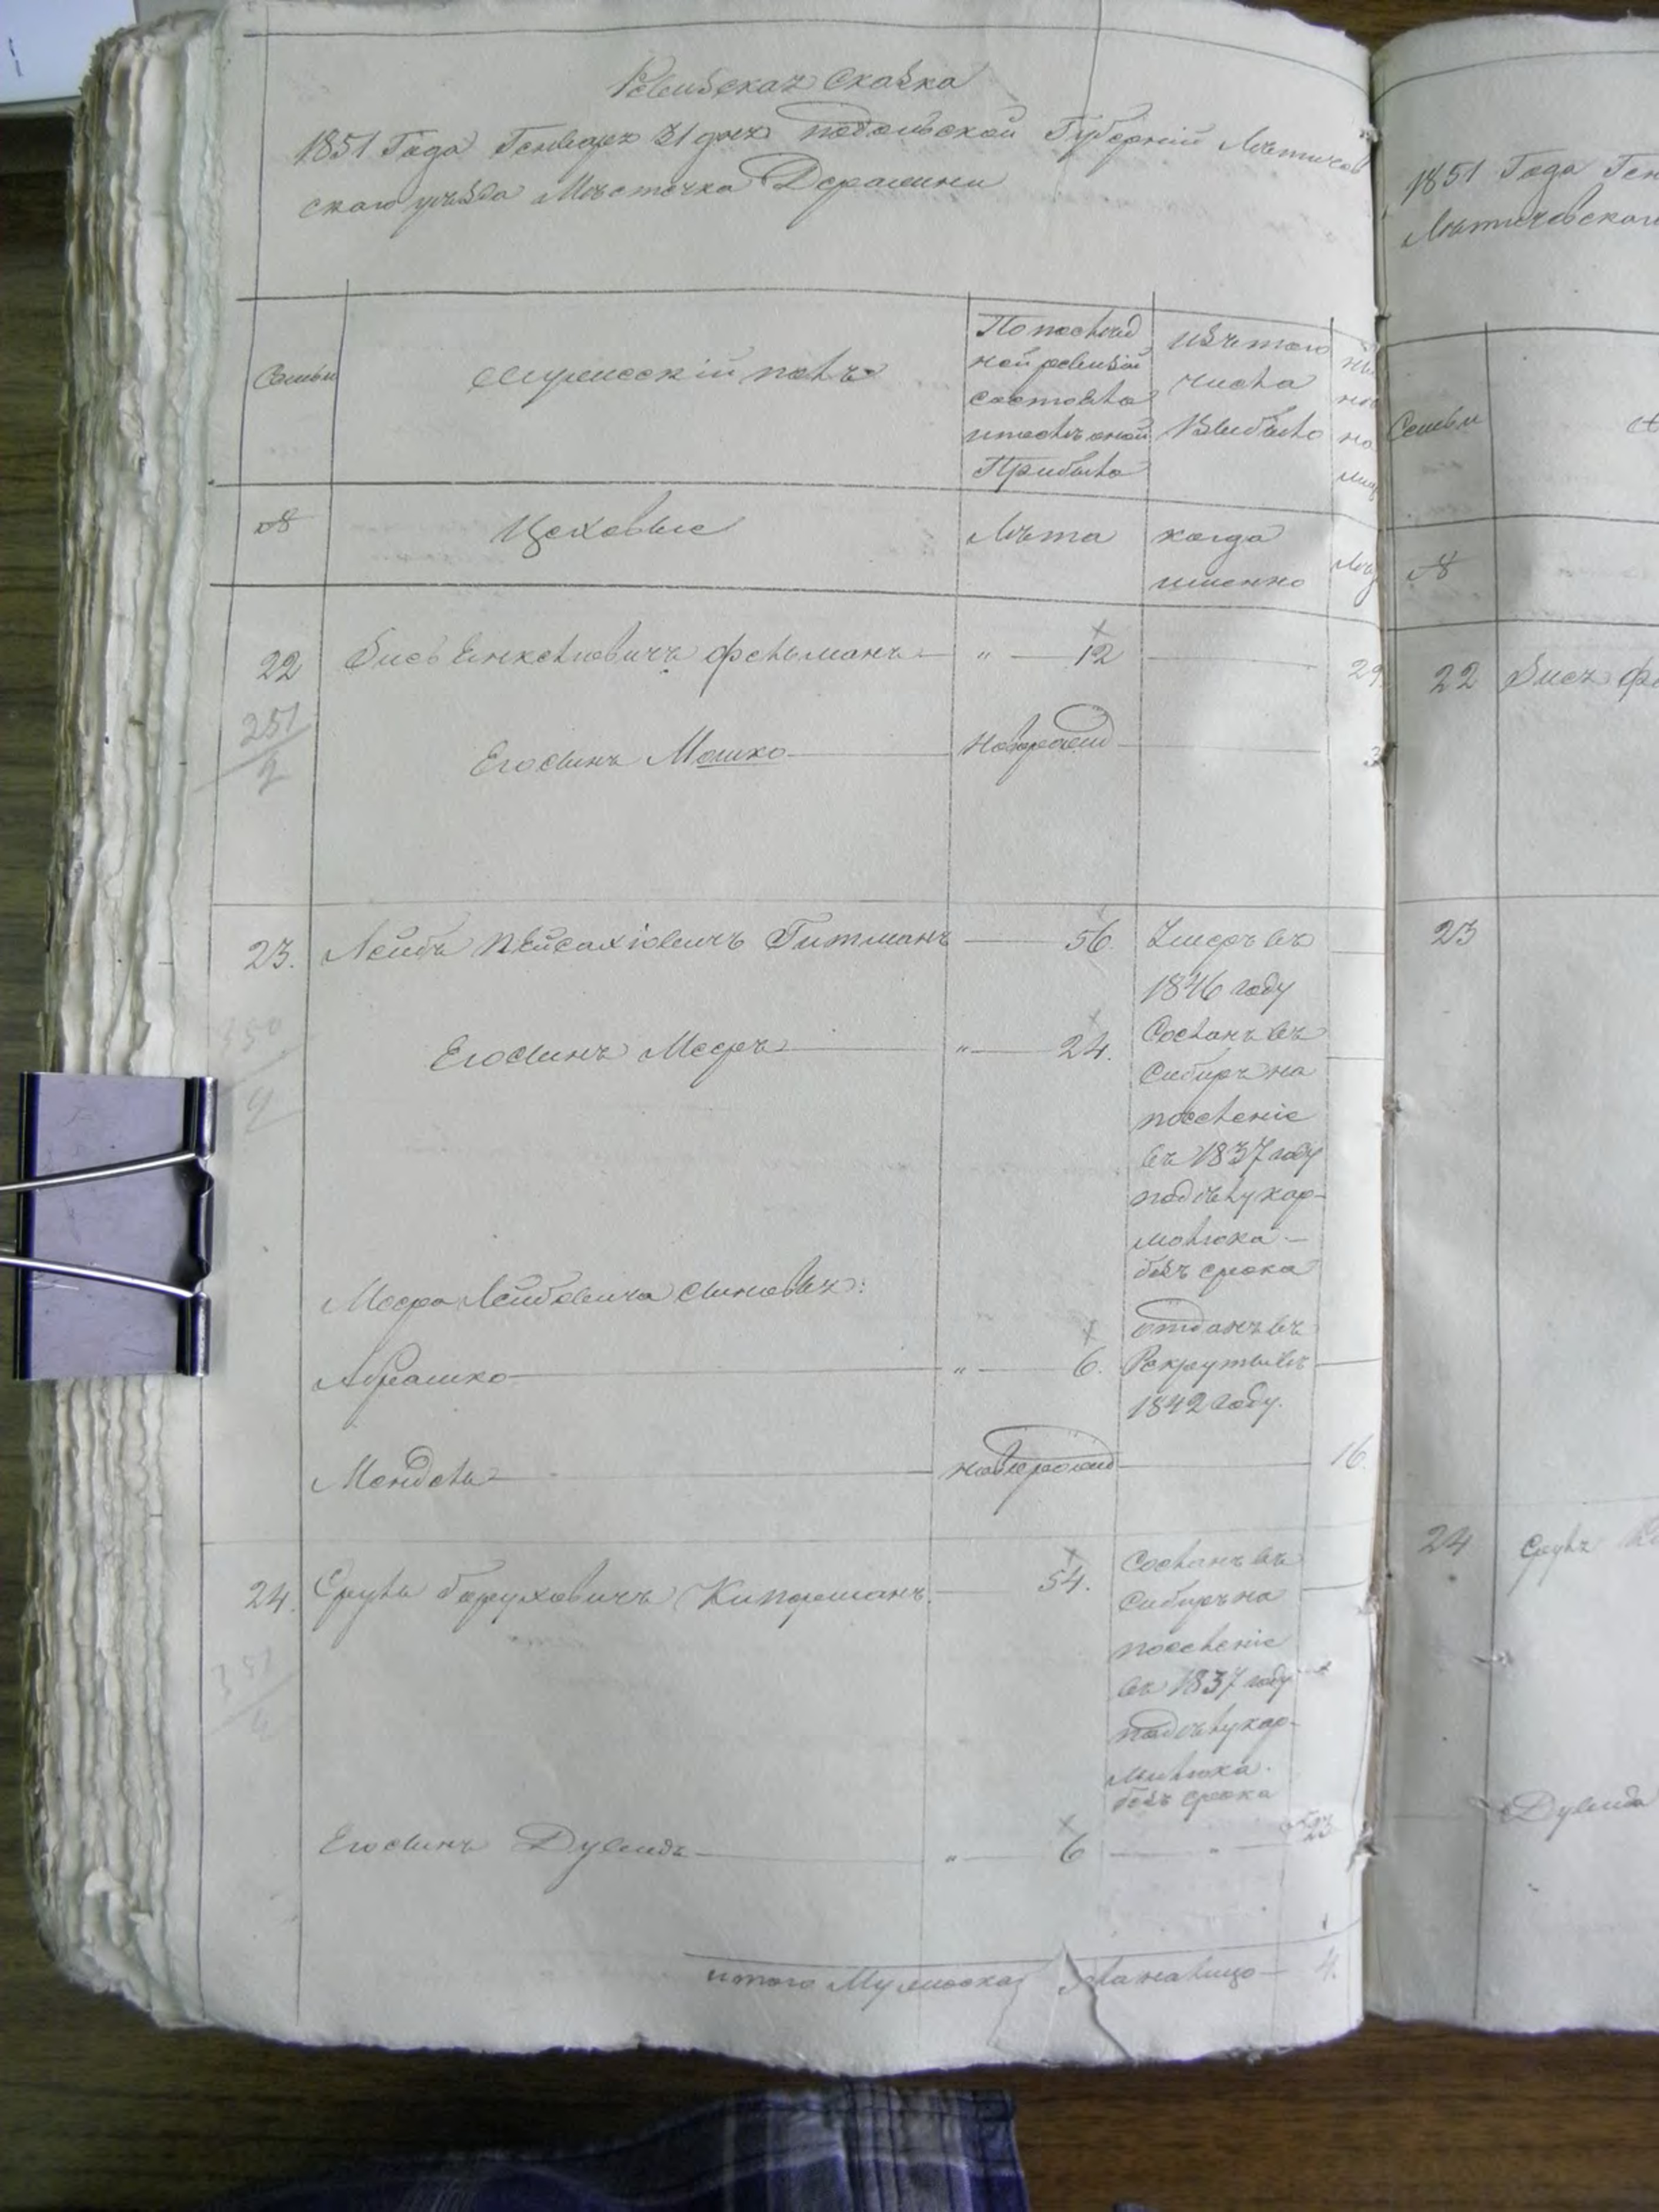 Ревизская Сказка
1851 Года Генваря 31 дня Подольской Губерніи Летичев
скаго уезда Местечка Деражни
Семьи
Мужескій полъ
По послед
ней ревизіи
состояло
и после оной
Прибыло
Изъ того
числа
Выбыло
№
Цеховые
Лета
когда
именно
22
Зисъ Янкелевичъ Фельманъ
" 12
29
251/2
Его сынъ Мошко
новорожд
3
23.
Лейбъ Пейсахіовичъ Гитманъ
56.
Умеръ въ
1846 году
Его сынъ Мееръ
" 24.
Сосланъ въ
Сибирь на
поселеніе
въ 1837 году
по делу Кар-
молюка
безъ срока
Меера Лейбовича сыновья:
Абрамко
" 6.
отданъ въ
Рекруты въ
1842 году.
Мендель
новорожд
16.
24.
Сруль Боруховичъ Кипорманъ
54.
Сосланъ въ
Сибирь на
поселеніе
въ 1837 году
по делу Кар-
молюка.
безъ срока
Его сынъ Дувидъ
" 6
23
итого Мужеска налицо
4.
1851 Года Ген
Летичевскаго
Семьи
№
22
Зисъ Фе
23
24
Сруль
Дувида